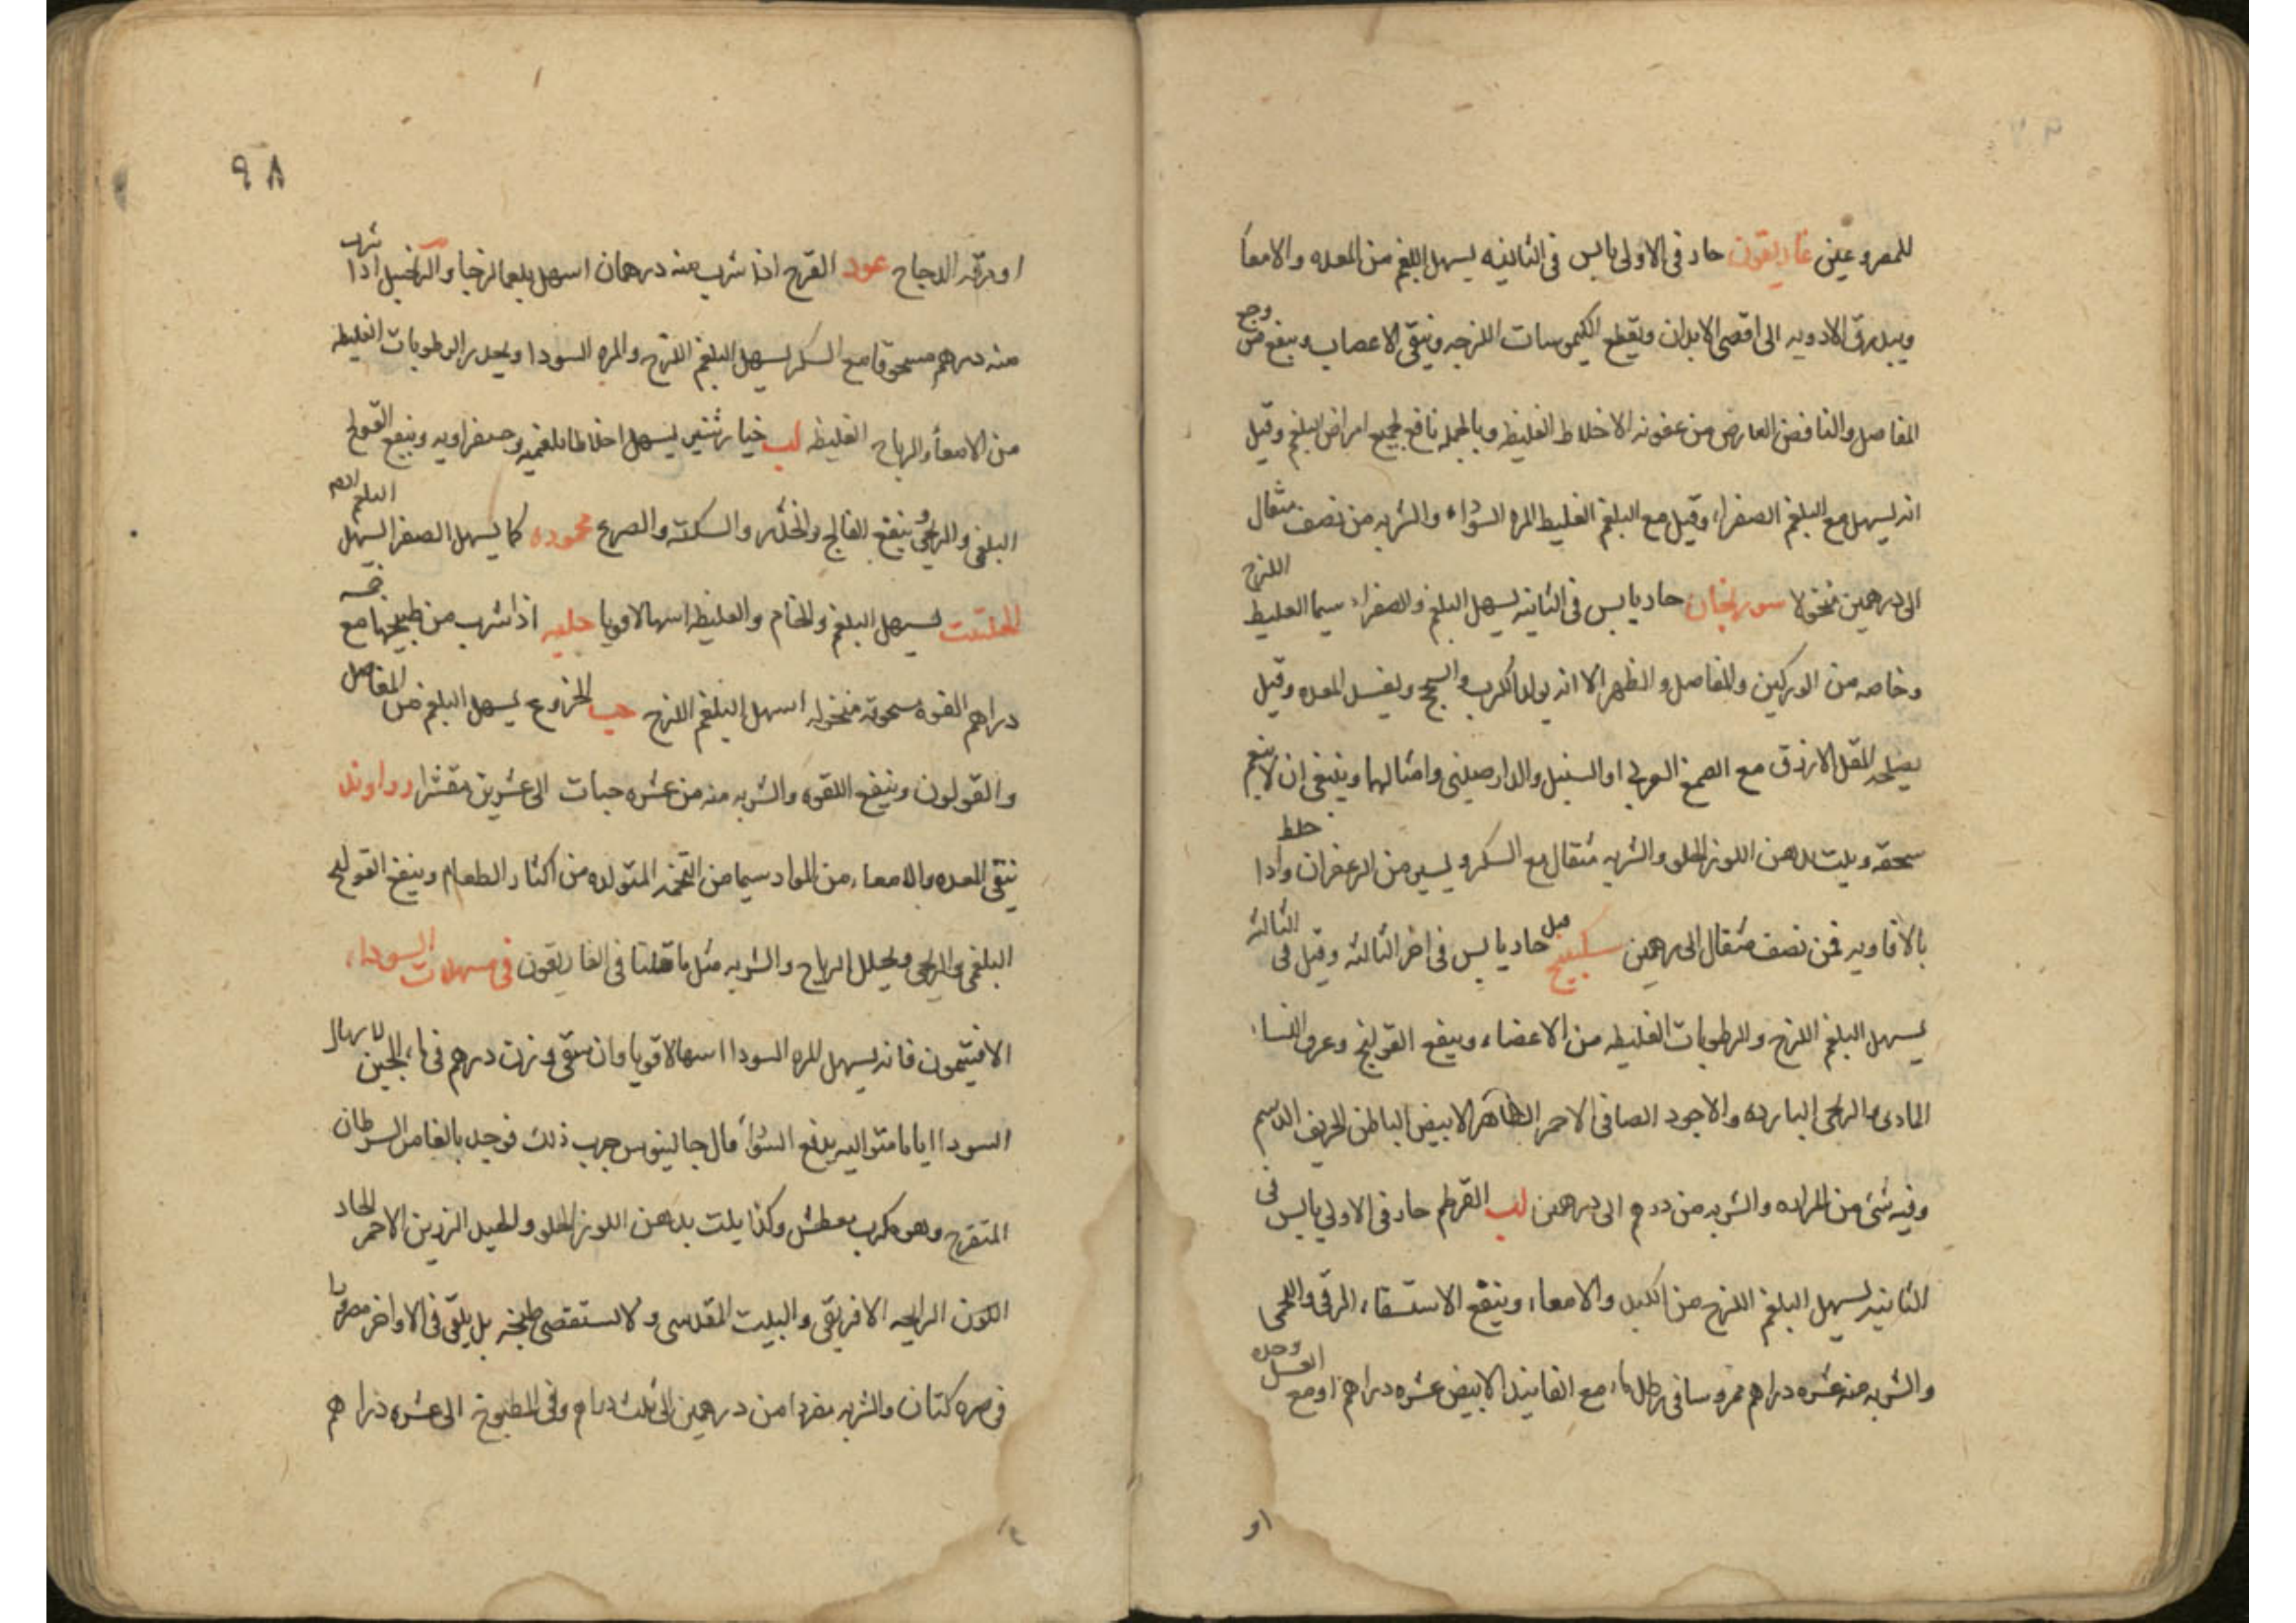 للمصروعين غاريقون حار في الاولى يابس في الثانيه يسهل البلغم من المعده والامعا
ويبدرق الادويه الى اقصى الابدان ويقطع الكيموسات اللزجه وينقى الاعصاب وينفع من وجع
المفاصل والنافض العارض من عفونه الاخلاط الغليظه وبالجمله نافع لجميع امراض البلغم وقيل
انه يسهل مع البلغم الصفراء وقيل مع البلغم الغليط المره السوداء والشربه من نصف مثقال
الى درهمين منخولا سورنجان حار يابس في الثانيه يسهل البلغم والصفراء سيما الغليط اللزج
وخاصه من الوركين والمفاصل والظهر الا انه يولد الكرب والسحج ويفسد المعده وقيل
يصلحه المقل الازرق مع الصمغ العربي او السنبل والدارصيني وامثالها وينبغي ان لا ينعم
سحقه ويلت بدهن اللوز الحلو والشربه مثقال مع السكر ويسير من الزعفران واذا خلط
بالافاويه فمن نصف مثقال الى درهمين سكبينج قيل حار يابس في اخر الثالثه وقيل في الثالثه
يسهل البلغم اللزج والرطوبات الغليظه من الاعضاء وينفع القولنج وعرق النساء
المادى والريحى البارده والاجود الصافي الاحمر الظاهر الابيض الباطن الحريف الدسم
وفيه شئ من المراره والشربه من درهم الى درهمين لب القرطم حار في الاولي يابس في
الثانيه يسهل البلغم اللزج من الكبد والامعاء وينفع الاستسقاء الزقى واللحمى
والشربه منه عشره دراهم ممروسا في رطل ماء مع الفانيذ الابيض عشره دراهم او مع العسل وحده
او
٩٨
او مرقه الدجاج عود القرح اذا شرب منه درهمان اسهل بلغما لزجا والزنجبيل اذا شرب
منه درهم مسحوقا مع السكر يسهل البلغم اللزج والمره السودا ويحدر الرطوبات الغليظه
من الامعأ والرياح الغليظه لب خيارشنبر يسهل اخلاطا بلغميه وصفراويه وينفع القولنج
البلغمى والريحى وينفع الفالج والخدر والسكته والصرع محموده كما يسهل الصفرا يسهل البلغم
الحلتيت يسهل البلغم والخام والغليظ اسهالا قويا حلبه اذا شرب من طبيخها مع خمسه
دراهم الفوه مسحوقه منخوله اسهل البلغم اللزج حب الخروع يسهل البلغم من المفاصل
والقولون وينفع اللقوه والشربه منه من عشره حبات الى عشرين مقشرا رواوند
ينقى المعده والامعاء من المواد سيما من التخمه المتولده من اكثار الطعام وينفع القولنج
البلغمى والريحى ويحلل الرياح والشربه مثل ما قلنا في الغاريقون في مسهلات السوداء
الافتيمون فانه يسهل المره السودا اسهالا قويا وان سقى وزن درهم في ماء الجبن لاسهال
السودا اياما متواليه يدفع السودأ قال جالينوس جرب ذلك فوجد بالغا من السرطان
المتقرح وهو مكرب معطش وكذا يلت بدهن اللوز الحلو والجيد الرزين الاحمر الحاد
اللون الرايحه الافريقى والبيت المقدسى ولا يستقصى طبخه بل يلقى في الاواخر مصرورا
في صره كتان والشربه مفردا من درهمين الى ثلث دراهم وفي المطبوخ الى عشره دراهم